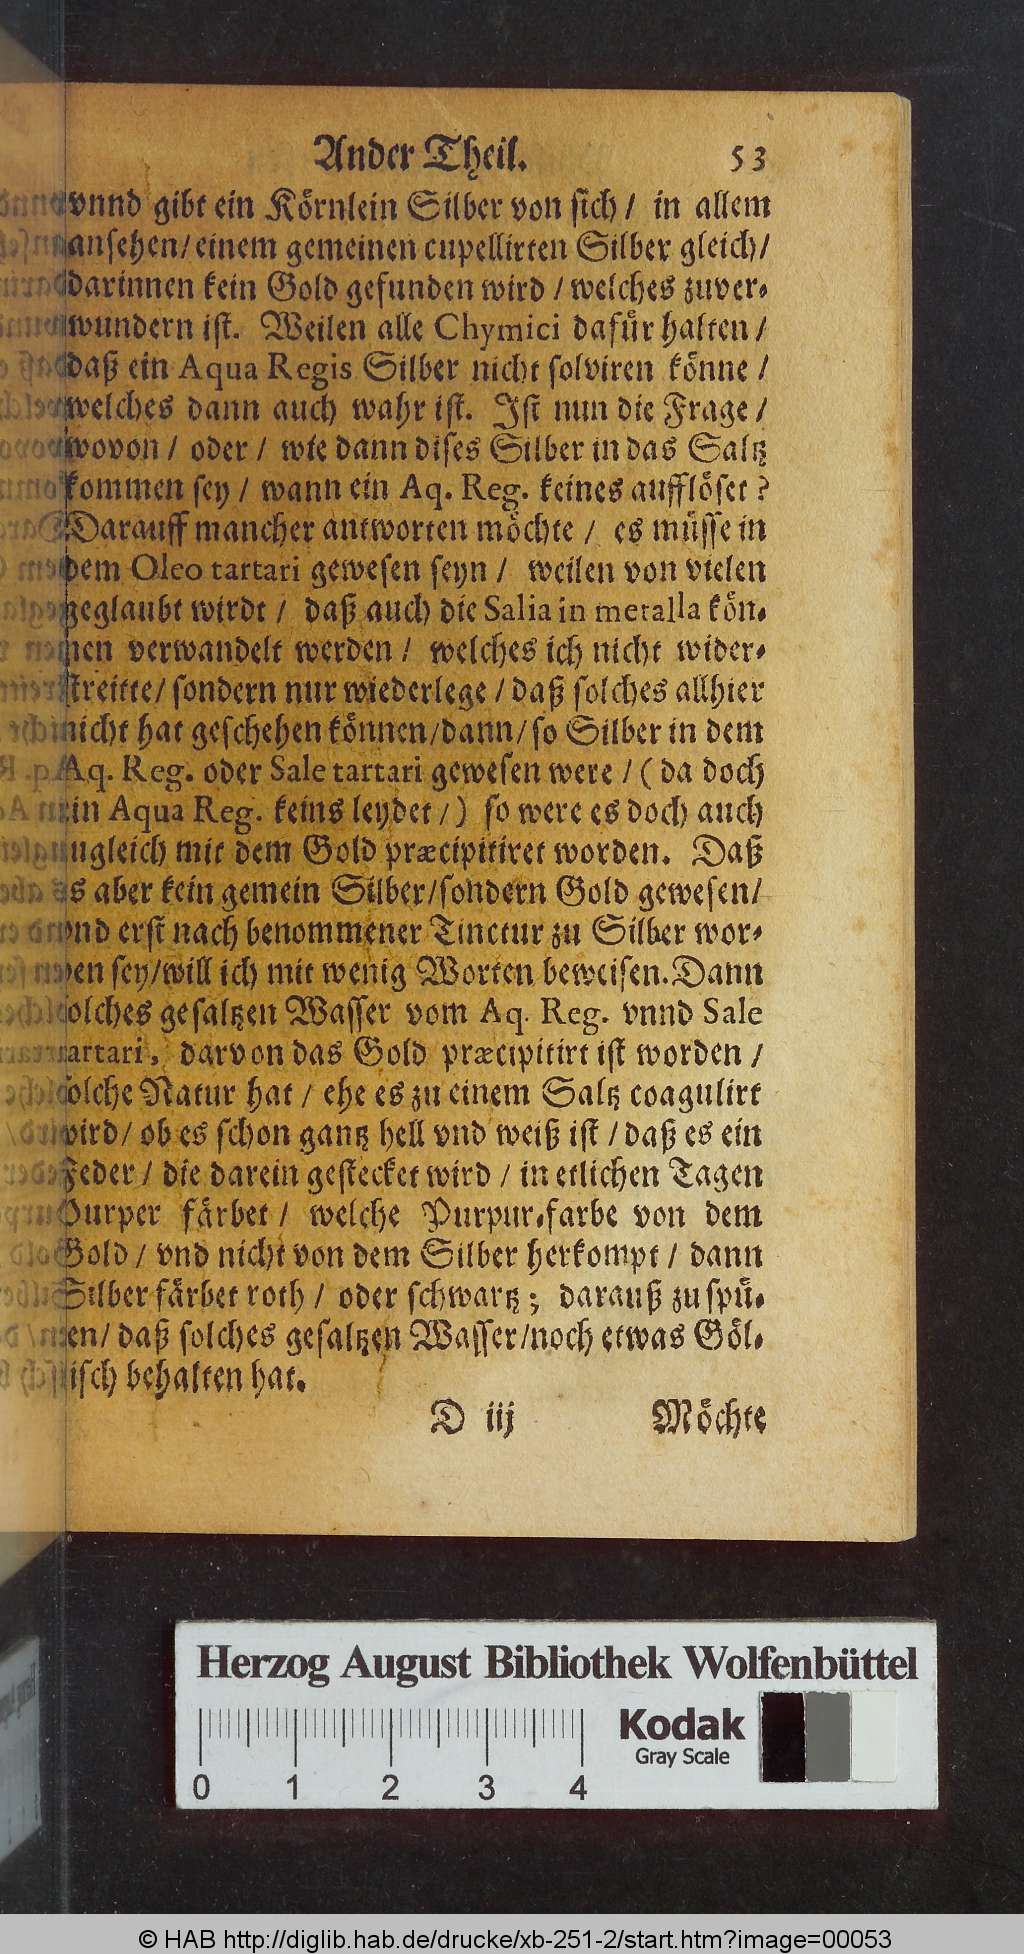 Ander Theil. 53
vnnd gibt ein Körnlein Silber von sich / in allem
ansehen / einem gemeinen cupellirten Silber gleich /
darinnen kein Gold gefunden wird / welches zuver-
wundern ist. Weilen alle Chymici dafür halten /
daß ein Aqua Regis Silber nicht solviren könne /
welches dann auch wahr ist. Ist nun die Frage /
wovon / oder / wie dann dises Silber in das Saltz
kommen sey / wann ein Aq. Reg. keines aufflöset ?
Darauff mancher antworten möchte / es müsse in
dem Oleo tartari gewesen seyn / weilen von vielen
geglaubt wirdt / daß auch die Salia in metalla kön-
nen verwandelt werden / welches ich nicht wider-
streitte / sondern nur wiederlege / daß solches allhier
nicht hat geschehen können / dann / so Silber in dem
Aq. Reg. oder Sale tartari gewesen were / ( da doch
ein Aqua Reg. keins leydet / ) so were es doch auch
zugleich mit dem Gold præcipitiret worden. Daß
es aber kein gemein Silber / sondern Gold gewesen /
vnd erst nach benommener Tinctur zu Silber wor-
den sey / will ich mit wenig Worten beweisen. Dann
solches gesaltzen Wasser vom Aq. Reg. vnnd Sale
tartari, darvon das Gold præcipitirt ist worden /
solche Natur hat / ehe es zu einem Saltz coagulirt
wird / ob es schon gantz hell vnd weiß ist / daß es ein
Feder / die darein gestecket wird / in etlichen Tagen
Purper färbet / welche Purpur-farbe von dem
Gold / vnd nicht von dem Silber herkompt / dann
Silber färbet roth / oder schwartz ; darauß zu spü-
ren / daß solches gesaltzen Wasser / noch etwas Göl-
disch behalten hat.
D iij Möchte
Herzog August Bibliothek Wolfenbüttel
Kodak
Gray Scale
0 1 2 3 4
© HAB http://diglib.hab.de/drucke/xb-251-2/start.htm?image=00053